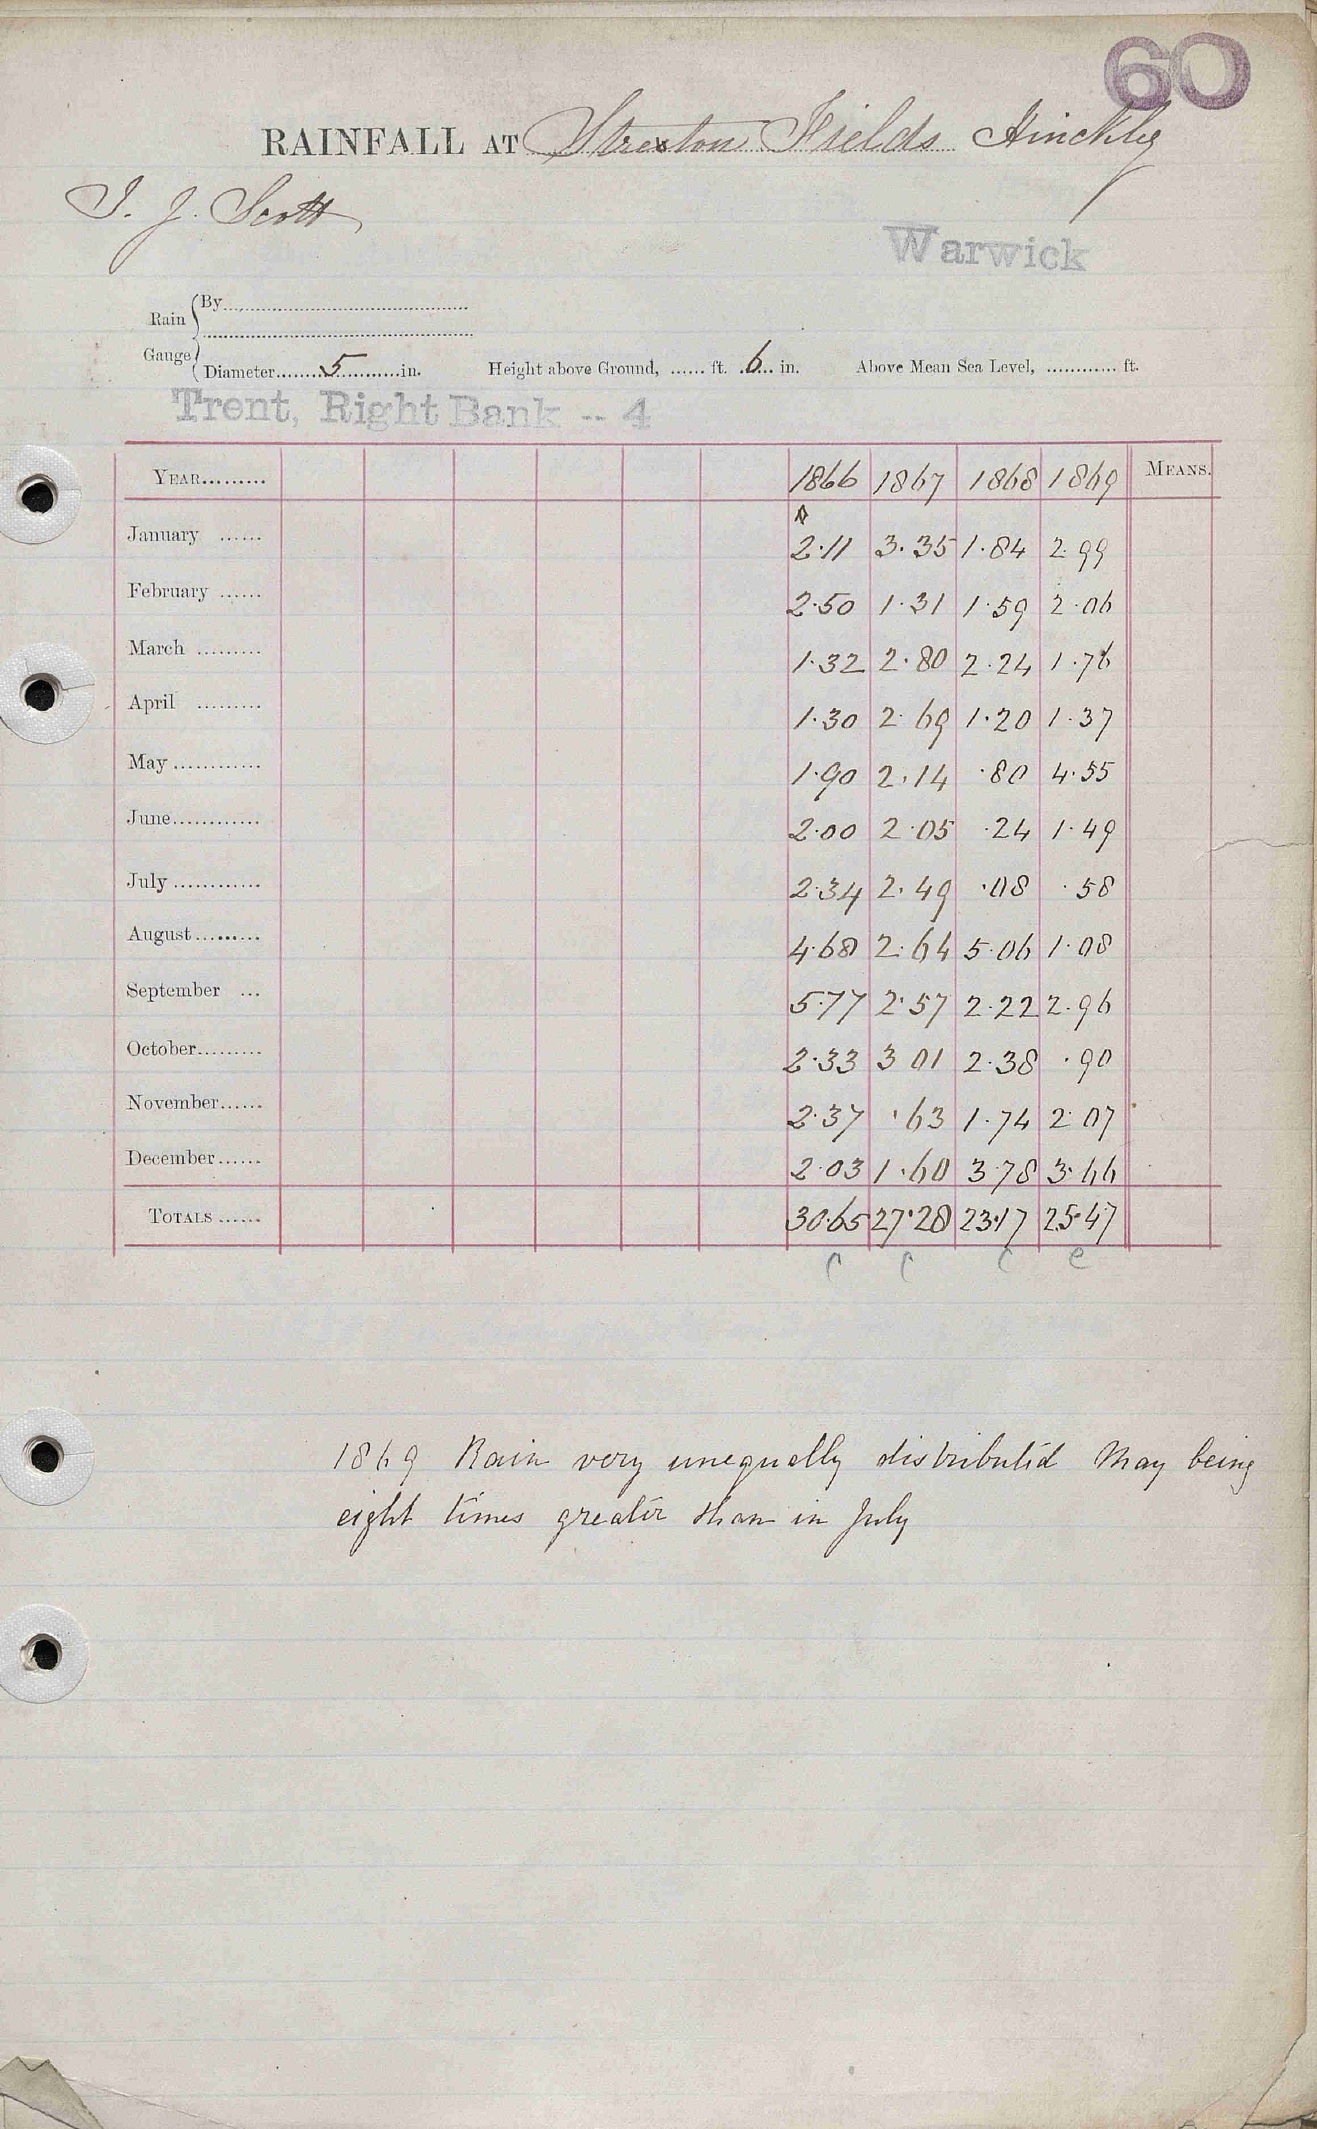 60
RAINFALL AT Stretton Fields Hinckley
T. J. Scott
Warwick
Rain Gauge
By
Diameter 5 in. Height above Ground, ...... ft. 6 in. Above Mean Sea Level, ............ ft.
Trent, Right Bank -- 4
YEAR......... 1866 1867 1868 1869 MEANS.
January ...... 2.11 3.35 1.84 2.99
February ...... 2.50 1.31 1.59 2.06
March ......... 1.32 2.80 2.24 1.76
April ......... 1.30 2.69 1.20 1.37
May ............ 1.90 2.14 .80 4.55
June............ 2.00 2.05 .24 1.49
July ............ 2.34 2.49 .08 .58
August......... 4.68 2.64 5.06 1.08
September ... 5.77 2.57 2.22 2.96
October......... 2.33 3 01 2.38 .90
November...... 2.37 .63 1.74 2.07
December...... 2.03 1.60 3.78 3.66
TOTALS ...... 30.65 27.28 23.17 25.47
c c c e
1869 Rain very unequally distributed May being
eight times greater than in July